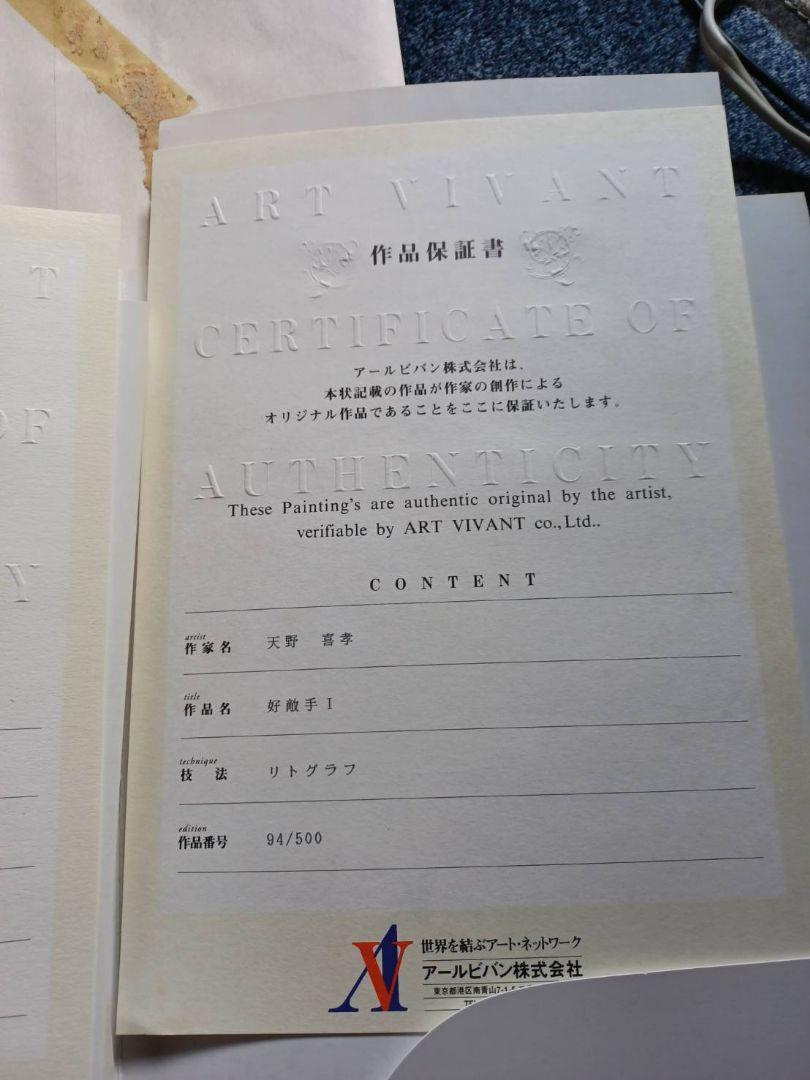 ART VIVANT
作品保証書
CERTIFICATE OF
アールビバン株式会社は、
本状記載の作品が作家の創作による
オリジナル作品であることをここに保証いたします。
AUTHENTICITY
These Painting's are authentic original by the artist,
verifiable by ART VIVANT co., Ltd..
CONTENT
artist
作家名 天野 喜孝
title
作品名 好敵手I
technique
技 法 リトグラフ
edition
作品番号 94/500
世界を結ぶアート・ネットワーク
アールビバン株式会社
東京都港区南青山7-1-5
T
OF
Y